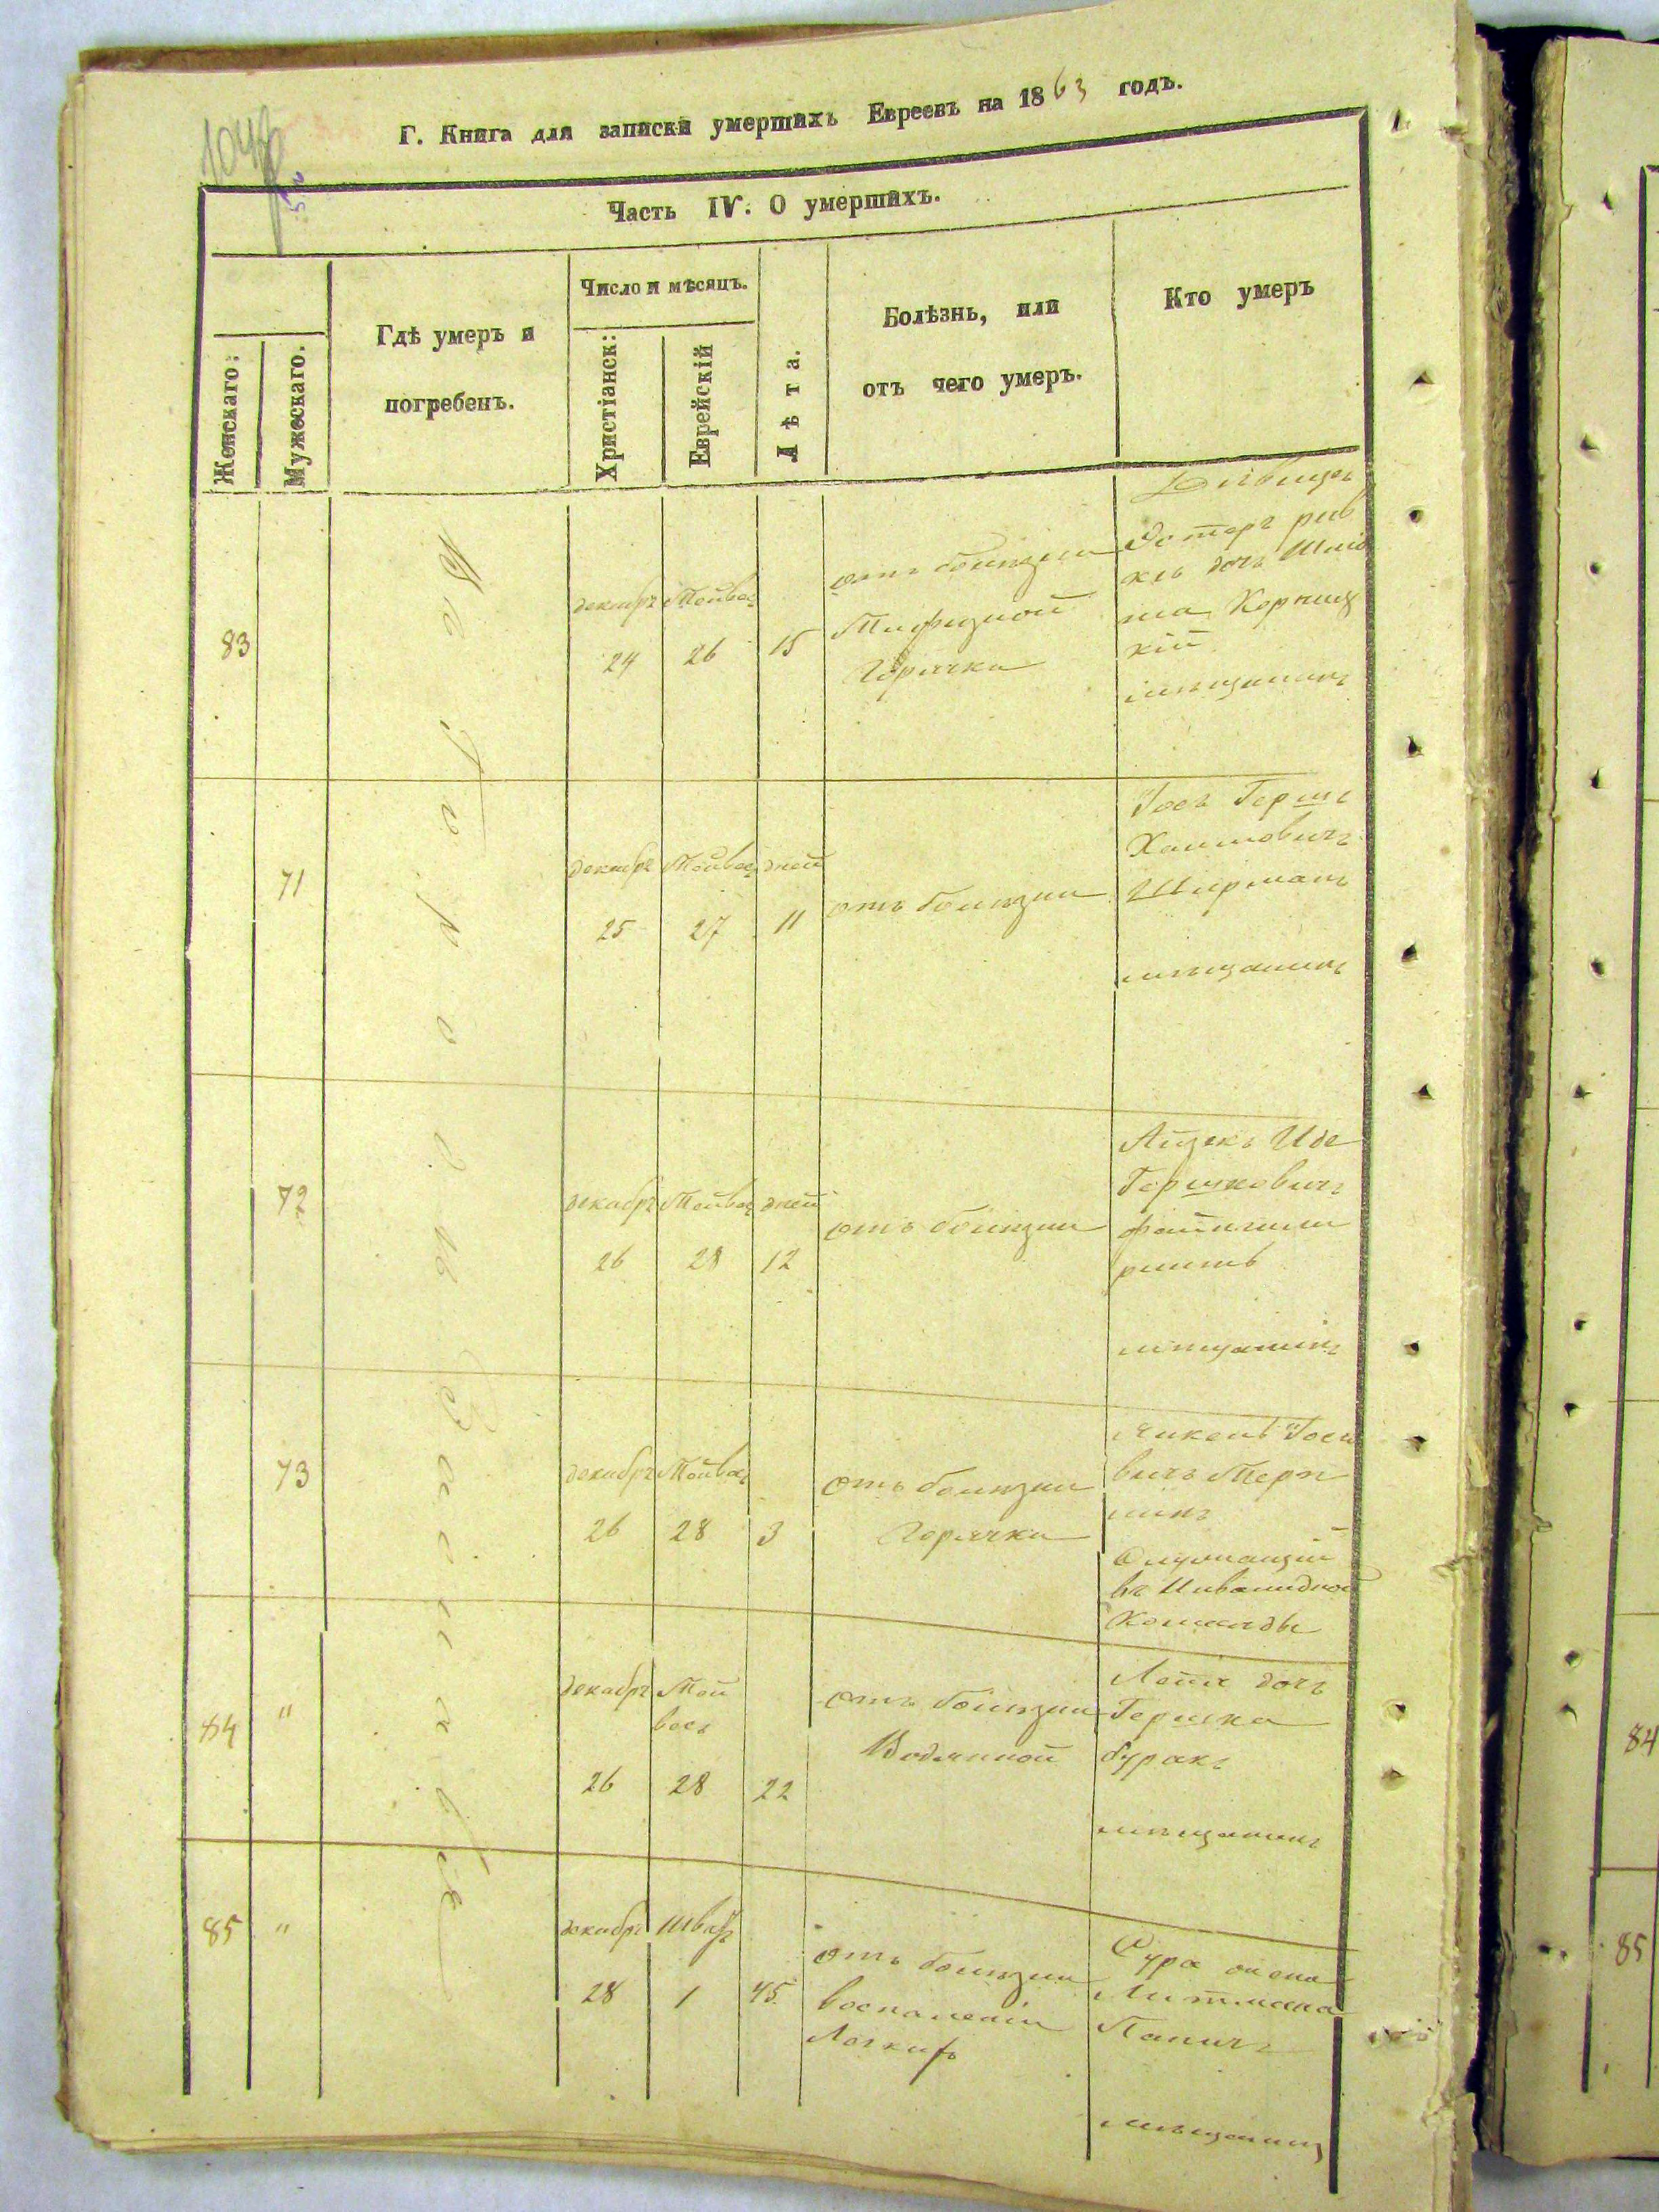 Г. Книга для записки умершихъ Евреевъ на 1863 годъ.
Часть IV. О умершихъ.
Женскаго:
Мужескаго.
Гдѣ умеръ и
погребенъ.
Число и мѣсяцъ.
Христіанск:
Еврейскій
Лѣта.
Болѣзнь, или
отъ чего умеръ.
Кто умеръ
Во Городѣ
83
декабръ
24
Тейвесъ
26
15
отъ болѣзни
Тифузной
Горячки
Дѣвица
Эстеръ рив
ка дочь
Корниц
кій
мѣщанинъ
71
декабръ
25
Тейвесъ
27
дней
11
отъ болѣзни
Іосъ Гершъ
Хаимовичъ
Ширманъ
мѣщанинъ
72
декабръ
26
Тейвесъ
28
дней
12
отъ болѣзни
Айзекъ Иде
Гершковичъ
мѣщанинъ
73
декабръ
26
Тейвесъ
28
3
отъ болѣзни
Горячки
вичъ
Служащій
въ Инвалидной
Команды
84
"
декабръ
26
Тей
весъ
28
22
отъ болѣзни
Водяной
Лея дочь
Гершка
буракъ
мѣщанинъ
85
"
декабръ
28
Шватъ
1
45
отъ болѣзни
воспаленіи
Легкихъ
Сура жена
Литмана
Папичъ
мѣщанинъ
84
85